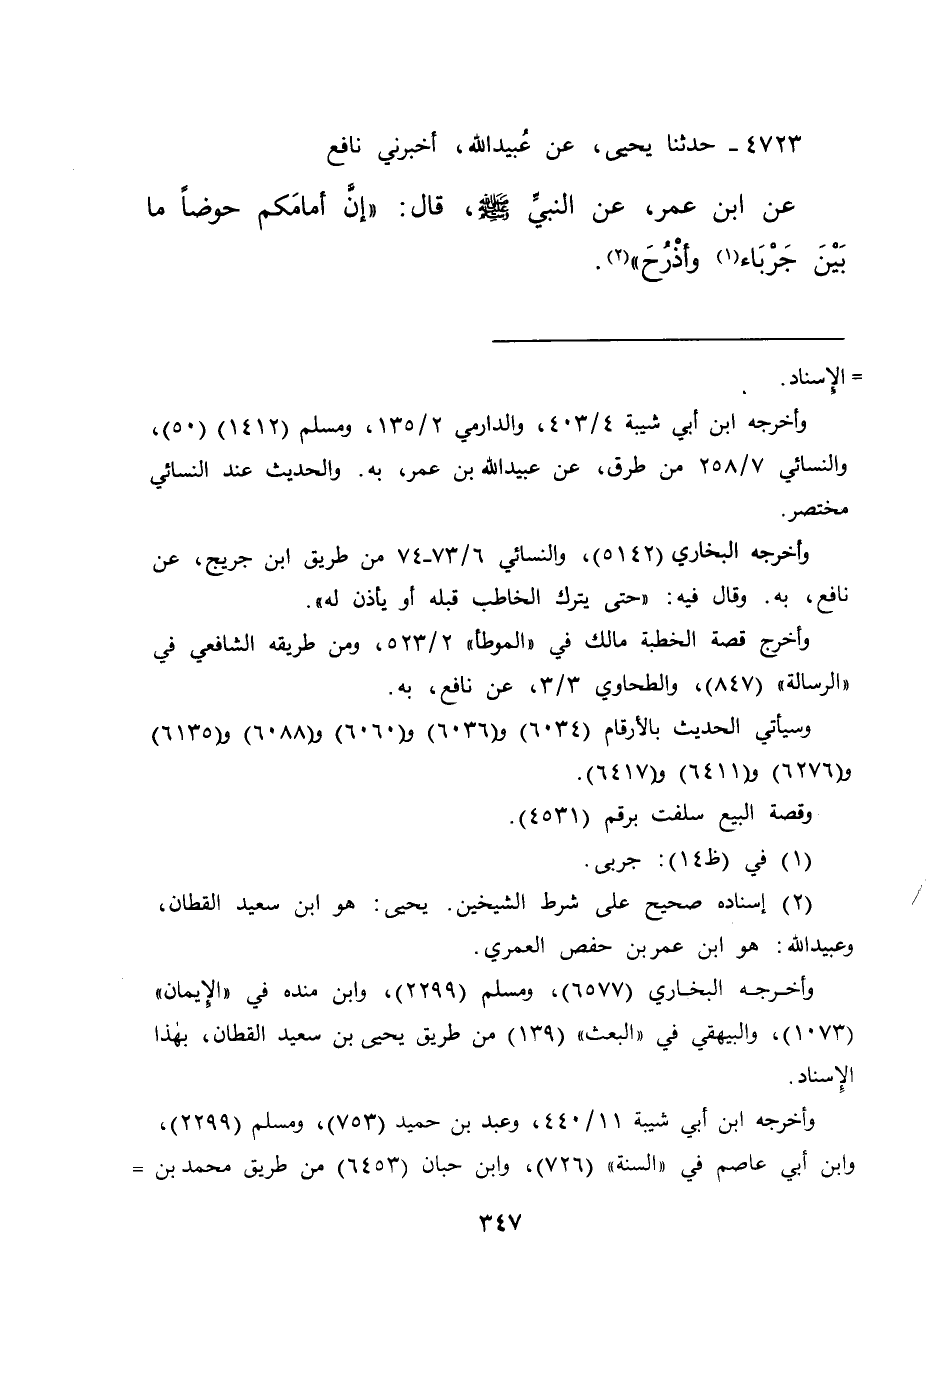 ٤٧٢٣ ـ حدثنا يحيى، عن عُبيدالله، أخبرني نافع
عن ابن عمر، عن النبيِّ ﷺ، قال: «إنَّ أمامَكم حوضاً ما
بَيْنَ جَرْبَاء(١) وأذْرُحَ»(٢).
= الإسناد.
وأخرجه ابن أبي شيبة ٤٠٣/٤، والدارمي ١٣٥/٢، ومسلم (١٤١٢) (٥٠)،
والنسائي ٢٥٨/٧ من طرق، عن عبيدالله بن عمر، به. والحديث عند النسائي
مختصر.
وأخرجه البخاري (٥١٤٢)، والنسائي ٧٣/٦ـ٧٤ من طريق ابن جريج، عن
نافع، به. وقال فيه: «حتى يترك الخاطب قبله أو يأذن له».
وأخرج قصة الخطبة مالك في «الموطأ» ٥٢٣/٢، ومن طريقه الشافعي في
«الرسالة» (٨٤٧)، والطحاوي ٣/٣، عن نافع، به.
وسيأتي الحديث بالأرقام (٦٠٣٤) و(٦٠٣٦) و(٦٠٦٠) و(٦٠٨٨) و(٦١٣٥)
و(٦٢٧٦) و(٦٤١١) و(٦٤١٧).
وقصة البيع سلفت برقم (٤٥٣١).
(١) في (ظ١٤): جربى.
(٢) إسناده صحيح على شرط الشيخين. يحيى: هو ابن سعيد القطان،
وعبيدالله: هو ابن عمر بن حفص العمري.
وأخرجه البخاري (٦٥٧٧)، ومسلم (٢٢٩٩)، وابن منده في «الإيمان»
(١٠٧٣)، والبيهقي في «البعث» (١٣٩) من طريق يحيى بن سعيد القطان، بهٰذا
الإسناد.
وأخرجه ابن أبي شيبة ٤٤٠/١١، وعبد بن حميد (٧٥٣)، ومسلم (٢٢٩٩)،
وابن أبي عاصم في «السنة» (٧٢٦)، وابن حبان (٦٤٥٣) من طريق محمد بن =
٣٤٧